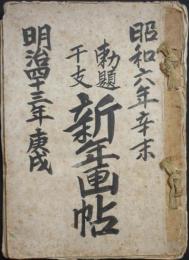 昭和六年辛未
勅題
干支
新年画帖
明治四十三年庚戌